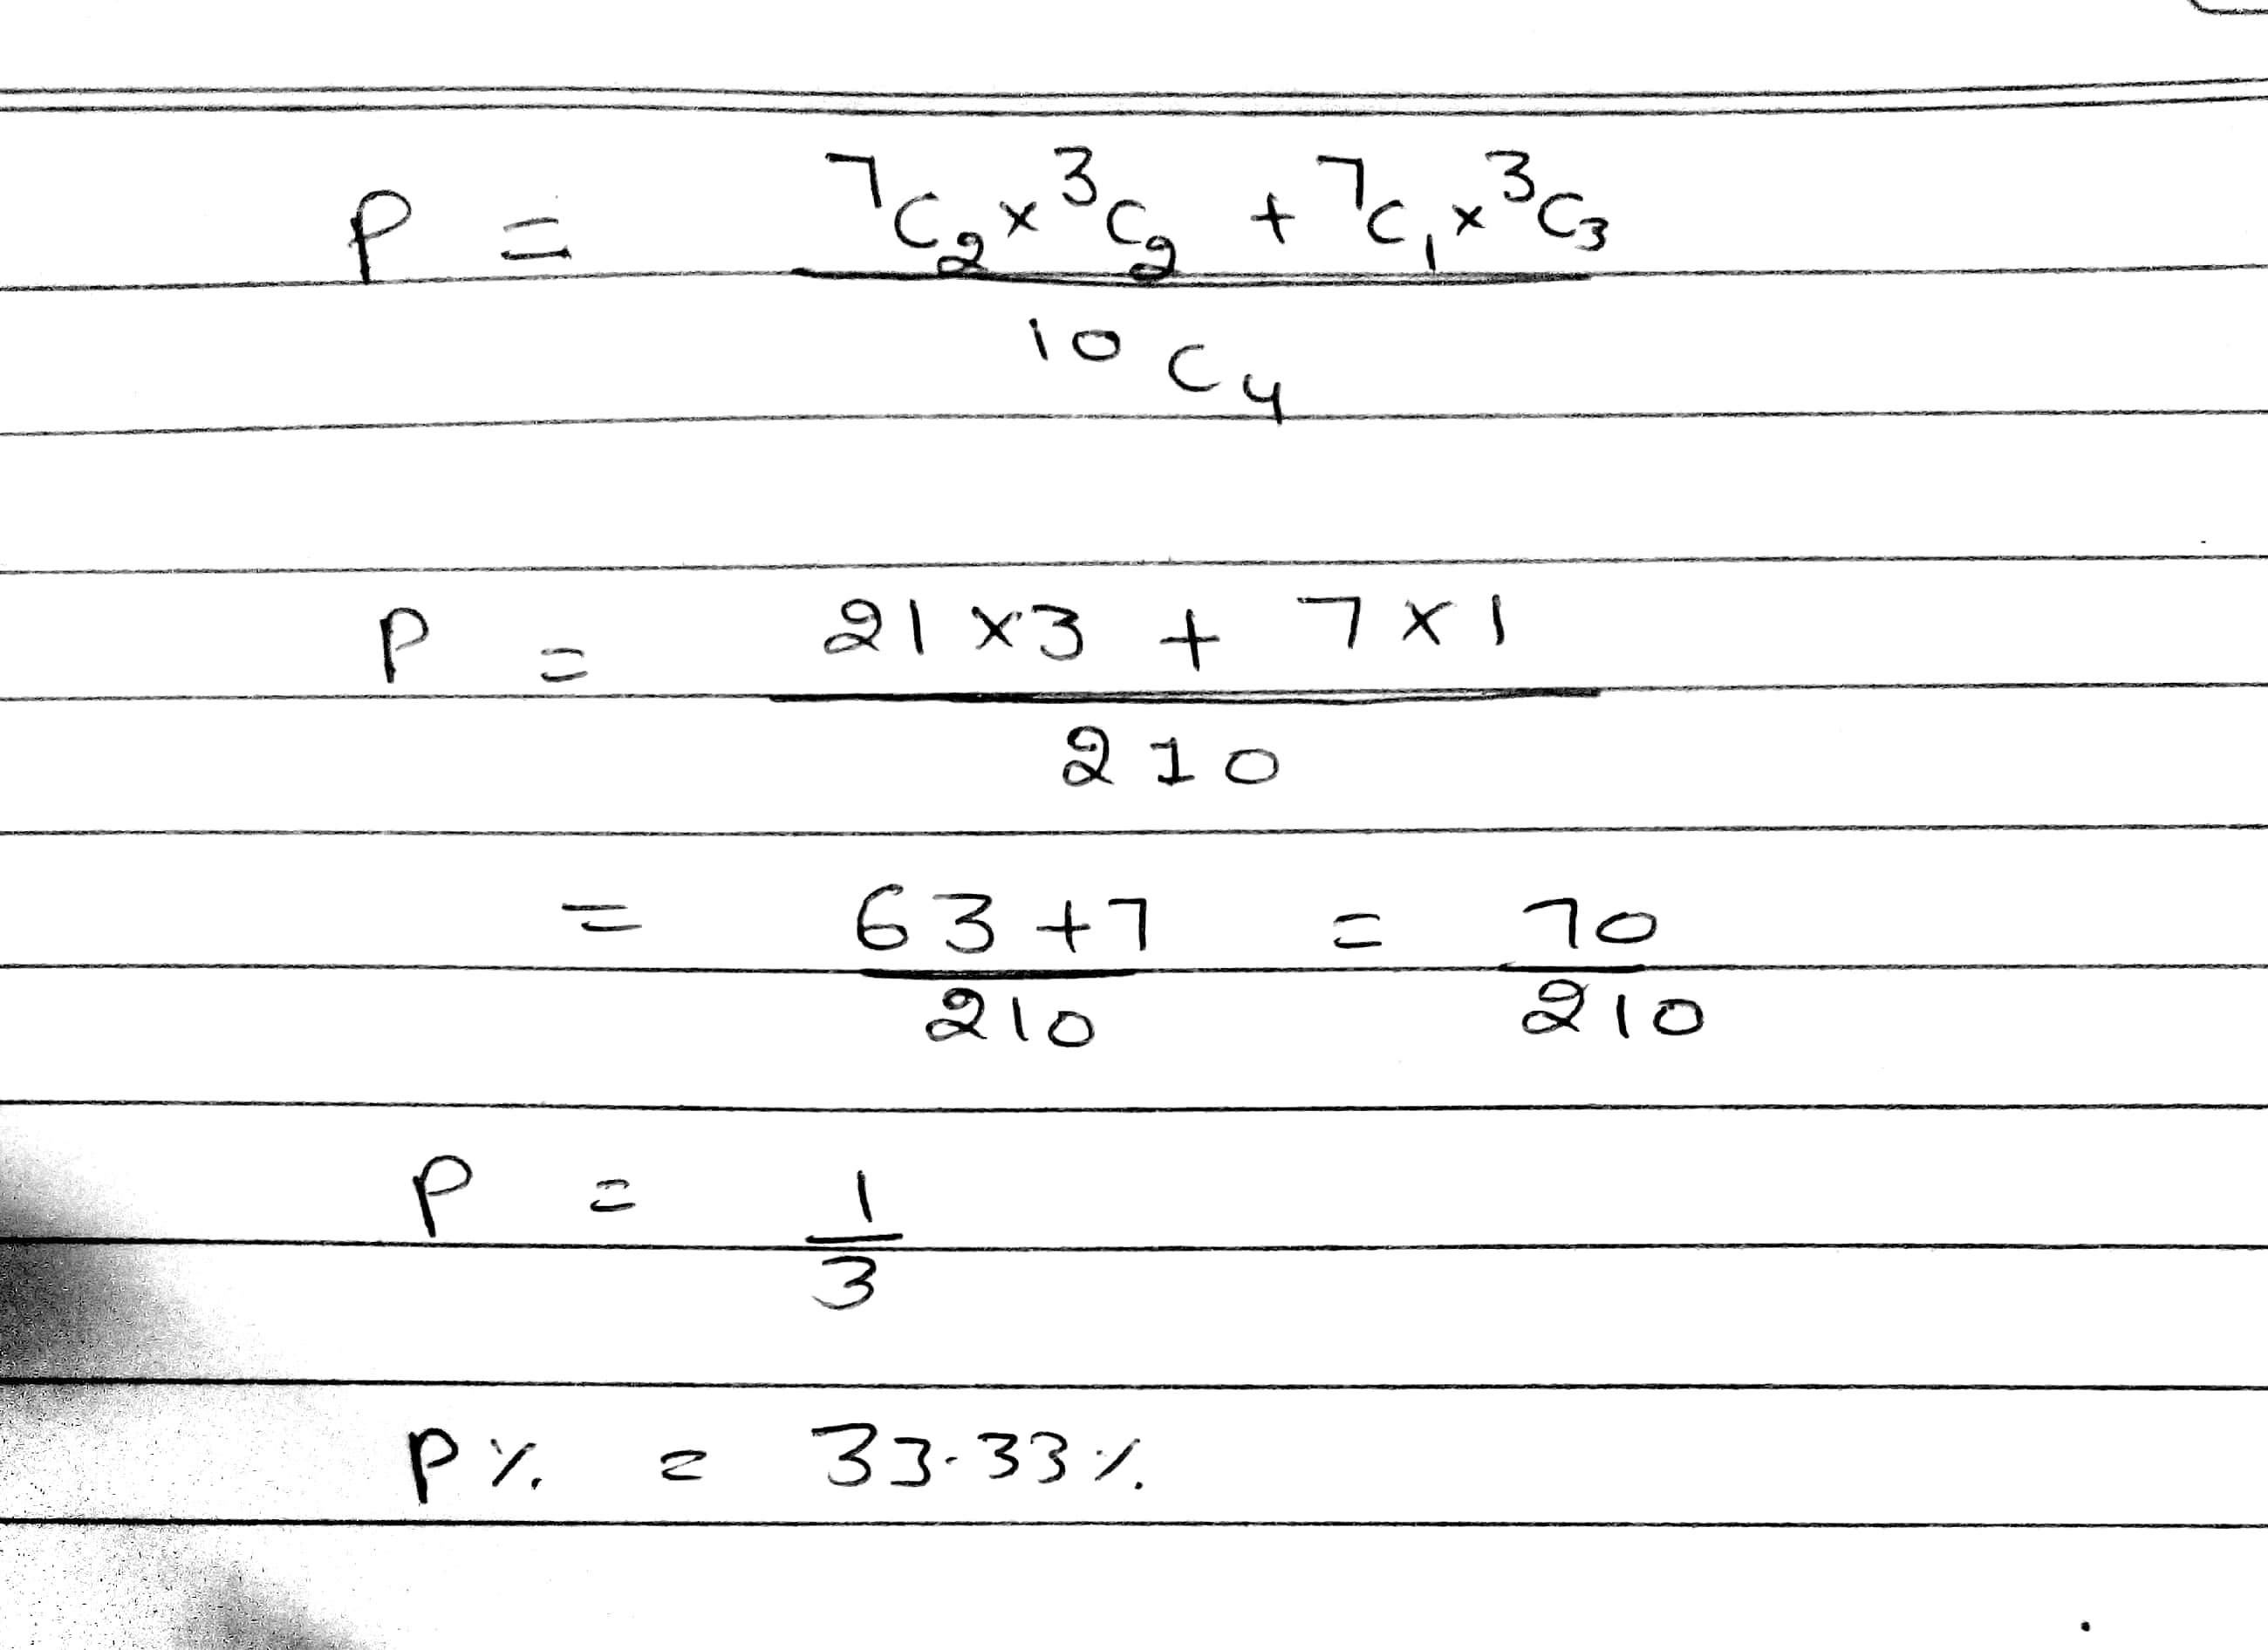 P = ⁷C₂ × ³C₂ + ⁷C₁ × ³C₃
¹⁰C₄
P = 21 × 3 + 7 × 1
210
= 63 + 7 = 70
210 210
P = 1
3
P% = 33.33%